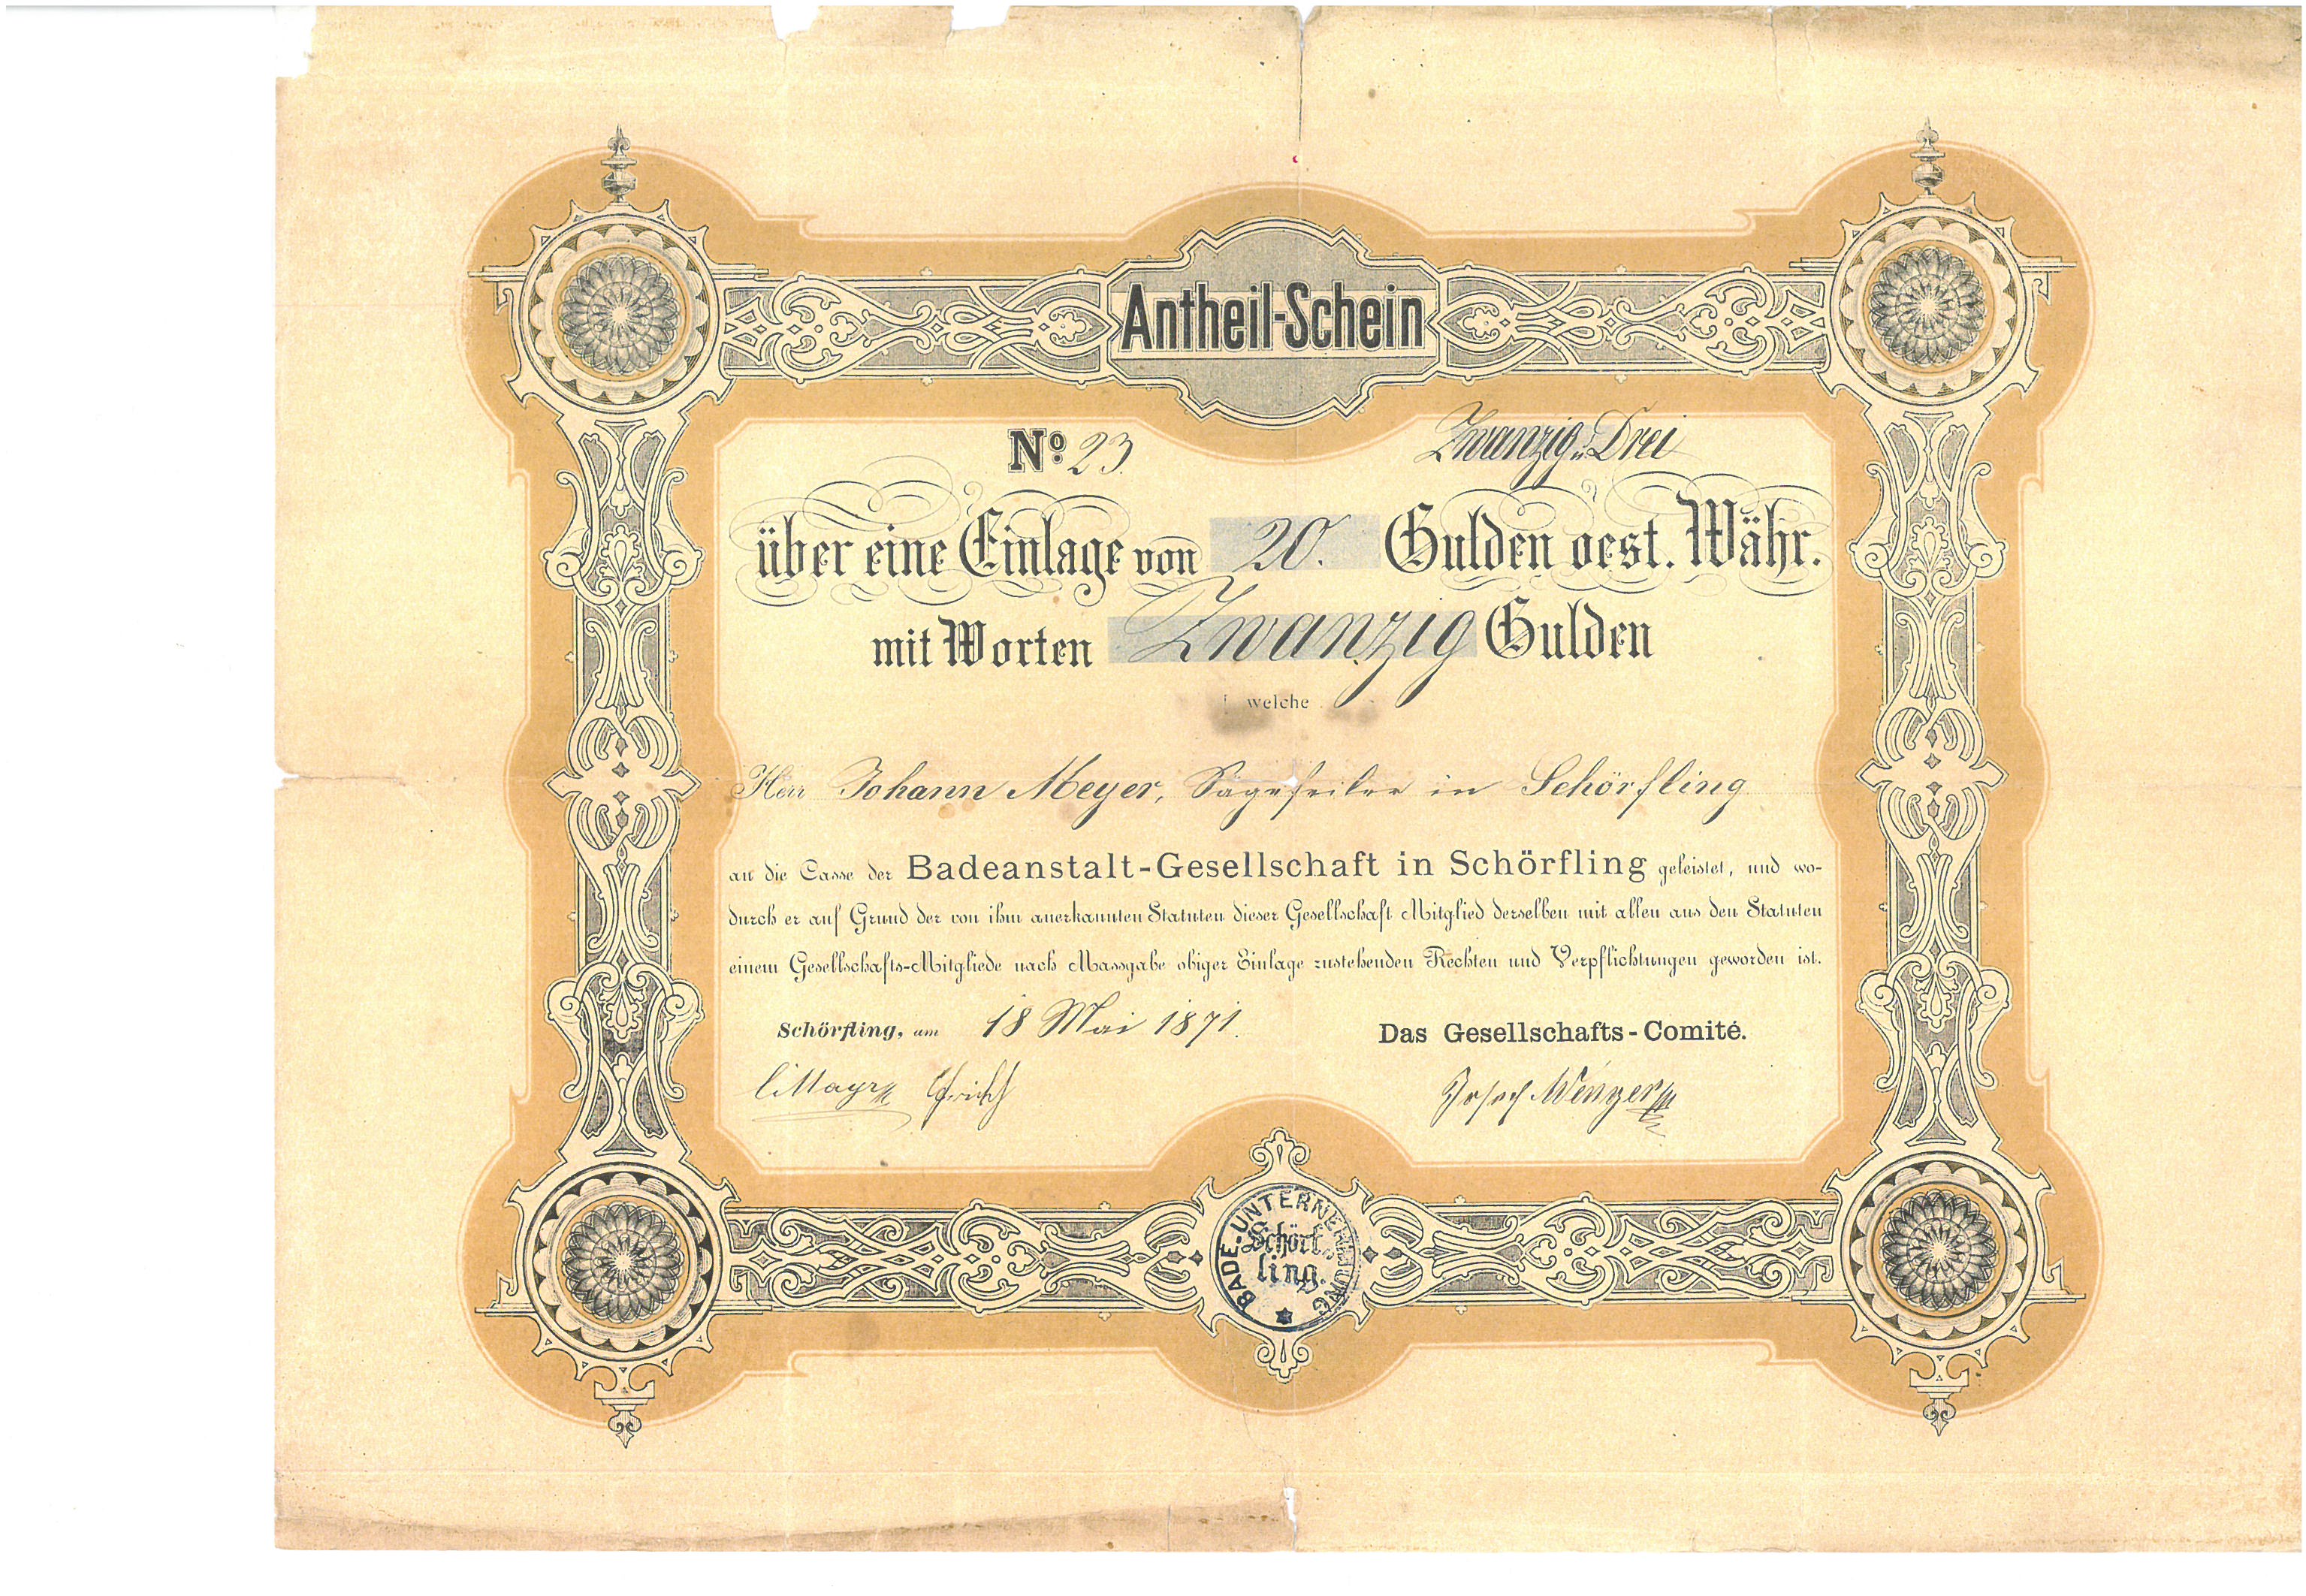 Antheil-Schein
No. 23. Zwanzig u. Drei
über eine Einlage von 20. Gulden oest. Währ.
mit Worten Zwanzig Gulden
welche
Herr Johann Meyer, Sägefeiler in Schörfling
an die Casse der Badeanstalt-Gesellschaft in Schörfling geleistet, und wo-
durch er auf Grund der von ihm anerkannten Statuten dieser Gesellschaft Mitglied derselben mit allen aus den Statuten
einem Gesellschafts-Mitgliede nach Massgabe obiger Einlage zustehenden Rechten und Verpflichtungen geworden ist.
Schörfling, am 18 Mai 1871. Das Gesellschafts-Comité.
Josef Wenger
BADE-UNTERNEHMUNG
Schörf
ling.